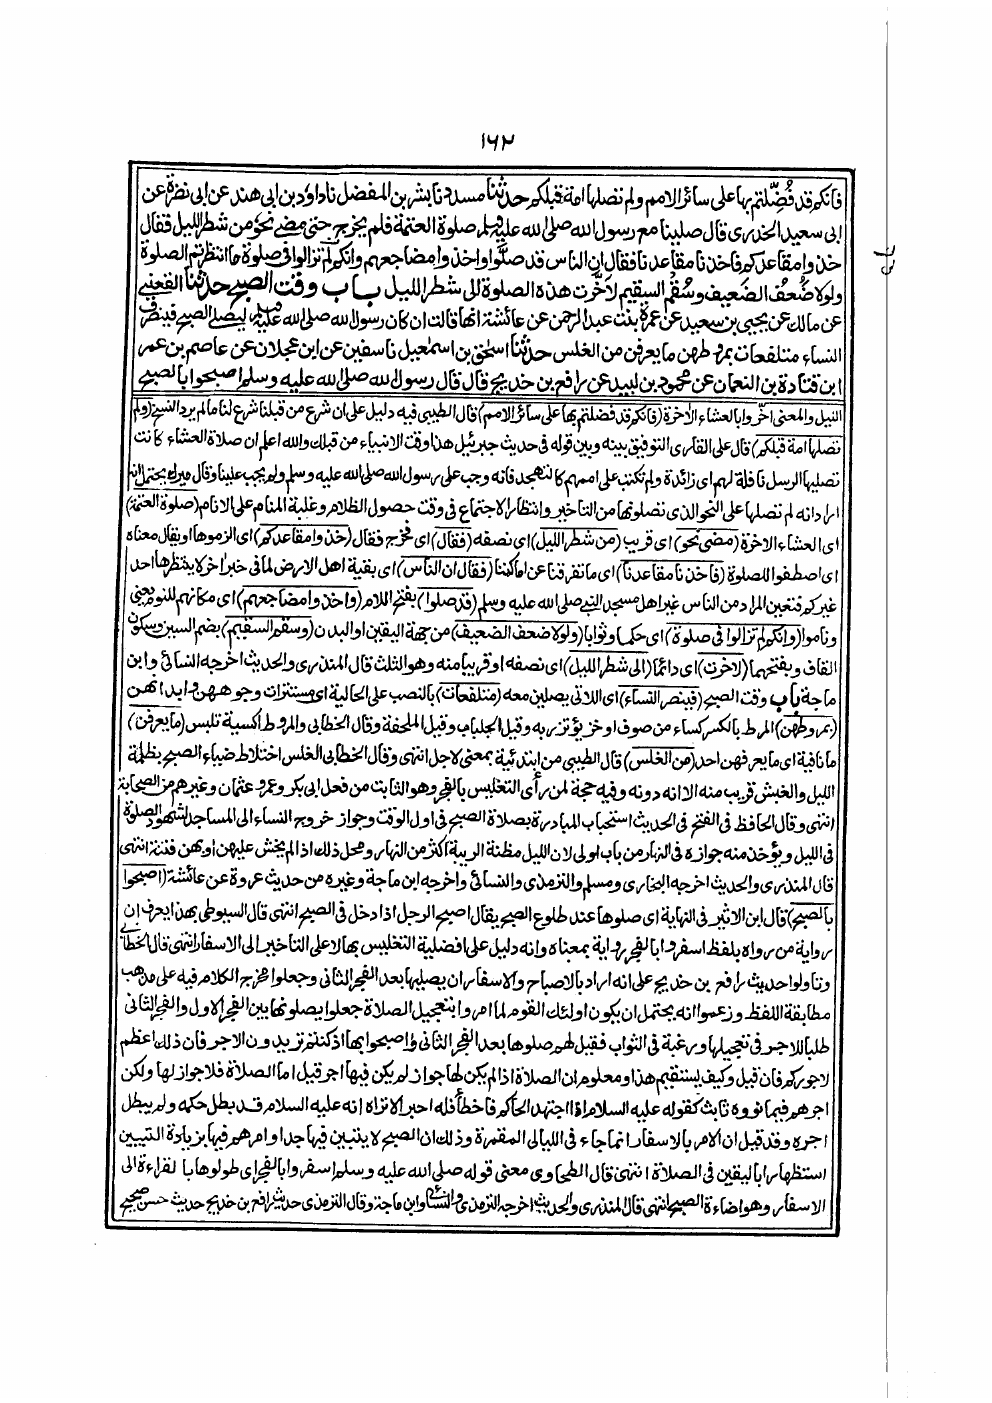 ١٦٢
فانكم قد فُضِّلتم بها على سائر الامم ولم تصلها امة قبلكم حدثنا مسدد نا بشر بن المفضل نا داؤد بن ابى هند عن ابى نضرة عن
ابى سعيد الخدرى قال صلينا مع رسول الله صلى الله عليه وسلم صلوة العتمة فلم يخرج حتى مضى نحوٌ من شطر الليل فقال
خذوا مقاعدكم فاخذنا مقاعدنا فقال ان الناس قد صلَّوا واخذوا مضاجعهم وانكم لم تزالوا فى صلوة ما انتظرتم الصلوة
ولولا ضُعف الضَعيف وسُقم السقيم لاخّرت هذه الصلوة الى شطر الليل باب وقت الصبح حدثنا القعنبى
عن مالك عن يحيى بن سعيد عن عمرة بنت عبد الرحمن عن عائشة انها قالت ان كان رسول الله صلى الله عليه وسلم ليصلى الصبح فينصرف
النساء متلفعات بمروطهن ما يعرفن من الغلس حدثنا اسحٰق بن اسمٰعيل نا سفين عن ابن عجلان عن عاصم بن عمر
ابن قتادة بن النعمان عن محمود بن لبيد عن رافع بن خديج قال قال رسول الله صلى الله عليه وسلم اصبحوا بالصبح
النيل والمعنى اخّروا بالعشاء الاٰخرة (فانكم قد فضلتم بها على سائر الامم) قال الطيبى فيه دليل على ان شرع من قبلنا شرع لنا ما لم يرد النسخ (ولم
تصلها امة قبلكم) قال على القارى التوفيق بينه وبين قوله فى حديث جبرئيل هذا وقت الانبياء من قبلك والله اعلم ان صلاة العشاء كانت
تصليها الرسل نافلة لهم اى زائدة ولم تكتب على اممهم كالتهجد فانه وجب على رسول الله صلى الله عليه وسلم ولم يجب علينا وقال ميرك يحتمل انه
اراد انه لم تصلها على النحو الذى تصلونها من التاخير وانتظار الاجتماع فى وقت حصول الظلام وغلبة المنام على الانام (صلوة العتمة)
اى العشاء الاخرة (مضى نحو) اى قريب (من شطر الليل) اى نصفه (فقال) اى فخرج فقال (خذوا مقاعدكم) اى الزموها او يقال معناه
اى اصطفوا للصلوة (فاخذنا مقاعدنا) اى ما تفرقنا عن اماكننا (فقال ان الناس) اى بقية اهل الارض لما فى خبر اٰخر لا ينتظرها احد
غيركم فتعين المراد من الناس غير اهل مسجد النبى صلى الله عليه وسلم (قد صلوا) بفتح اللام (واخذوا مضاجعهم) اى مكانهم للنوم يعنى
وناموا (وانكم لم تزالوا فى صلوة) اى حكما وثوابا (ولولا ضعف الضعيف) من جهة اليقين او البدن (وسقم السقيم) بضم السين وسكون
القاف وبفتحهما (لاخرت) اى دائما (الى شطر الليل) اى نصفه او قريبا منه وهو الثلث قال المنذرى والحديث اخرجه النسائى وابن
ماجة باب وقت الصبح (فينصرف النساء) اى اللاتى يصلين معه (متلفعات) بالنصب على الحالية اى مستترات وجوههن وابدانهن
(بمروطهن) المرط بالكسر كساء من صوف او خز يؤتزر به وقيل الجلباب وقيل الملحفة وقال الخطابى والمروط اكسية تلبس (ما يعرفن)
ما نافية اى ما يعرفهن احد (من الغلس) قال الطيبى من ابتدئية بمعنى لاجل انتهى وقال الخطابى الغلس اختلاط ضياء الصبح بظلمة
الليل والغبش قريب منه الا انه دونه وفيه حجة لمن رأى التغليس بالفجر وهو الثابت من فعل ابى بكر وعمر وعثمان وغيرهم من الصحابة
انتهى وقال الحافظ فى الفتح فى الحديث استحباب المبادرة بصلاة الصبح فى اول الوقت وجواز خروج النساء الى المساجد لشهود الصلوة
فى الليل ويؤخذ منه جوازه فى النهار من باب اولى لان الليل مظنة الريبة اكثر من النهار ومحل ذلك اذا لم يخش عليهن او بهن فتنة انتهى
قال المنذرى والحديث اخرجه البخارى ومسلم والترمذى والنسائى واخرجه ابن ماجة وغيره من حديث عروة عن عائشة (اصبحوا
بالصبح) قال ابن الاثير فى النهاية اى صلوها عند طلوع الصبح يقال اصبح الرجل اذا دخل فى الصبح انتهى قال السيوطى بهذا يعرف ان
رواية من رواه بلفظ اسفروا بالفجر رواية بمعناه وانه دليل على افضلية التغليس بها لا على التاخير الى الاسفار انتهى قال الخطابى
وتاولوا حديث رافع بن خديج على انه اراد بالاصباح والاسفار ان يصليها بعد الفجر الثانى وجعلوا مخرج الكلام فيه على مذهب
مطابقة اللفظ وزعموا انه يحتمل ان يكون اولئك القوم لما امروا بتعجيل الصلاة جعلوا يصلونها بين الفجر الاول والفجر الثانى
طلبا للاجر فى تعجيلها ورغبة فى الثواب فقيل لهم صلوها بعد الفجر الثانى واصبحوا بها اذ كنتم تريدون الاجر فان ذلك اعظم
لاجوركم فان قيل وكيف يستقيم هذا ومعلوم ان الصلاة اذا لم يكن لها جواز لم يكن فيها اجر قيل اما الصلاة فلا جواز لها ولكن
اجرهم فيما نووه ثابت كقوله عليه السلام اذا اجتهد الحاكم فاخطأ فله اجر الا تراه انه عليه السلام قد بطل حكمه ولم يبطل
اجره وقد قيل ان الامر بالاسفار انما جاء فى الليالى المقمرة وذلك ان الصبح لا يتبين فيها جدا وامرهم فيها بزيادة التبيين
استظهارا باليقين فى الصلاة انتهى قال الطحاوى معنى قوله صلى الله عليه وسلم اسفروا بالفجر اى طولوها بالقراءة الى
الاسفار وهو اضاءة الصبح انتهى قال المنذرى والحديث اخرجه الترمذى والنسائى وابن ماجة وقال الترمذى حديث رافع بن خديج حديث حسن صحيح